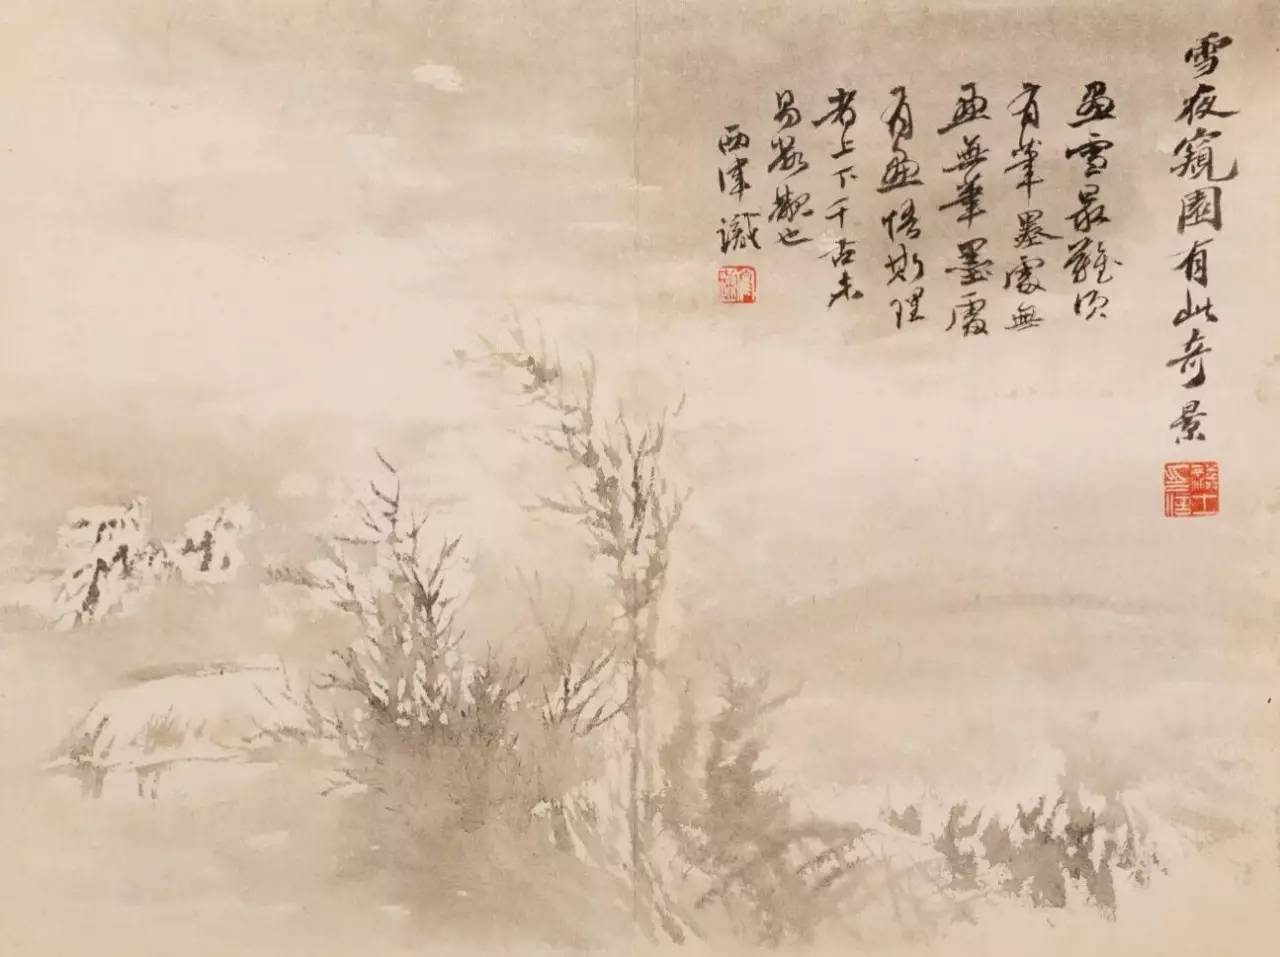 雪夜窺園有此奇景
畫雪最難須
有筆墨處無
畫無筆墨處
有畫悟斯理
者上下千古未
易數覯也
西津識